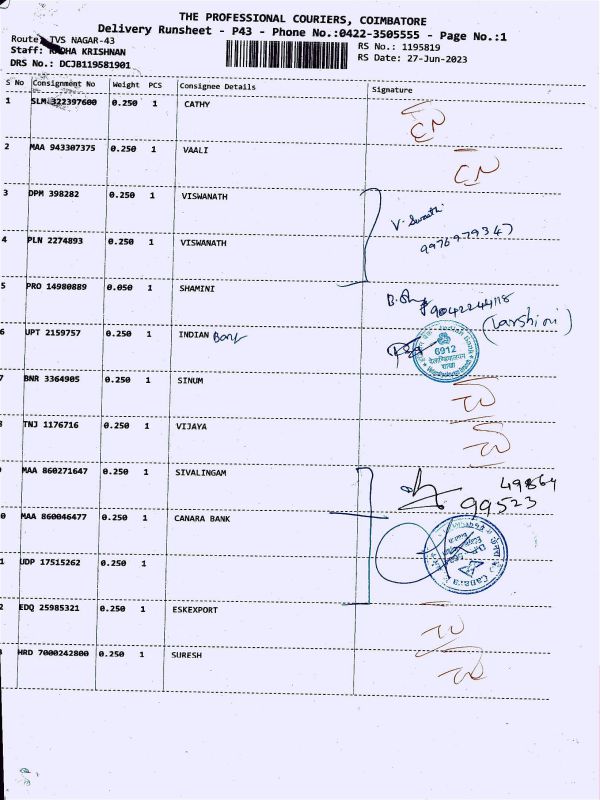 THE PROFESSIONAL COURIERS, COIMBATORE
Delivery Runsheet - P43 - Phone No.:0422-3505555 - Page No.:1
Route: TVS NAGAR-43
RS No.: 1195819
Staff: RADHA KRISHNAN
RS Date: 27-Jun-2023
DRS No.: DCJB119581901
S No Consignment No Weight PCS Consignee Details Signature
1 SLM 322397600 0.250 1 CATHY
2 MAA 943307375 0.250 1 VAALI
3 DPM 398282 0.250 1 VISWANATH
4 PLN 2274893 0.250 1 VISWANATH
9976979347
5 PRO 14980889 0.050 1 SHAMINI
9042244118
6 UPT 2159757 0.250 1 INDIAN Bank
6912
7 BNR 3364905 0.250 1 SINUM
TNJ 1176716 0.250 1 VIJAYA
MAA 860271647 0.250 1 SIVALINGAM
49864
99523
0 MAA 860046477 0.250 1 CANARA BANK
1 UDP 17515262 0.250 1
2 EDQ 25985321 0.250 1 ESKEXPORT
HRD 7000242800 0.250 1 SURESH